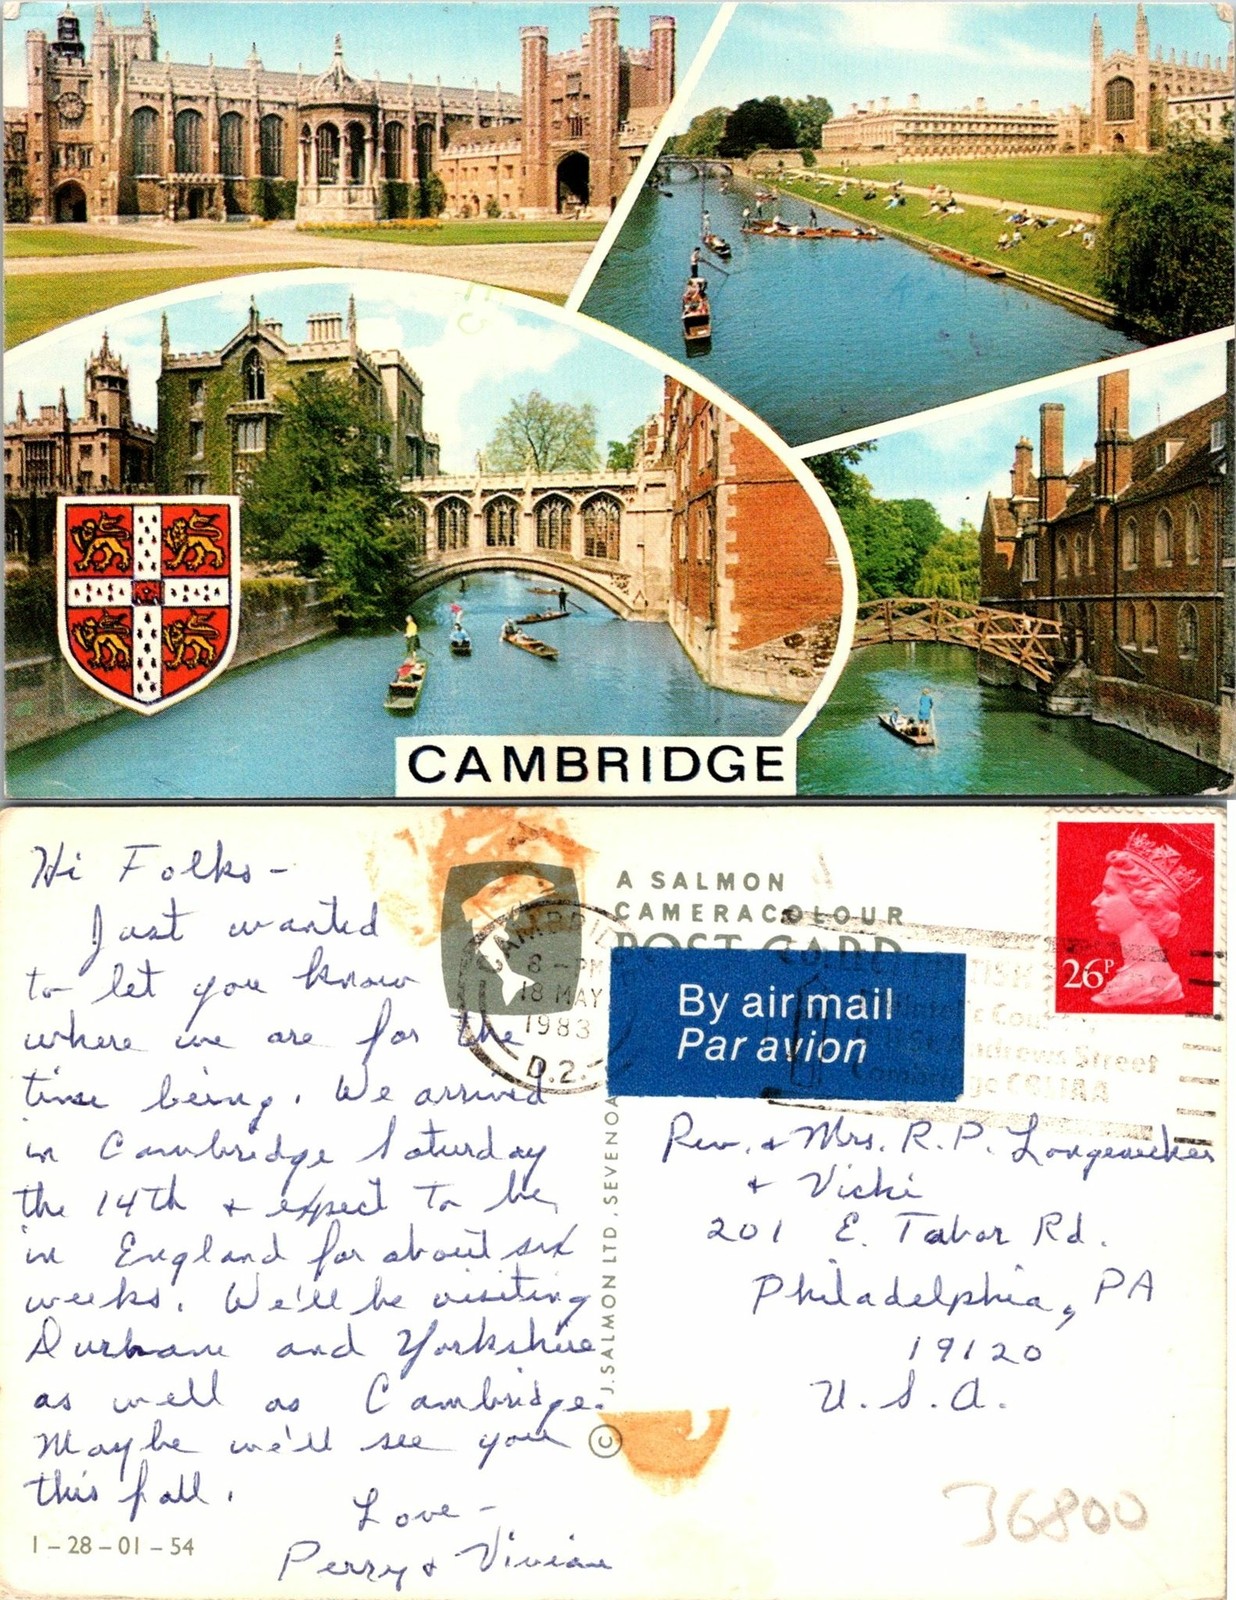 CAMBRIDGE
Hi Folks -
Just wanted
to let you know
where we are for the
time being. We arrived
in Cambridge Saturday
the 14th + expect to be
in England for about six
weeks. We'll be visiting
Durham and Yorkshire
as well as Cambridge.
Maybe we'll see you
this fall.
Love -
Perry + Vivian
1-28-01-54
A SALMON
CAMERACOLOUR
POST CARD
8-PM
18 MAY
1983
D.2.
By air mail
Par avion
26P
Andrews Street
© J. SALMON LTD, SEVENOA
Rev. + Mrs. R. P. Longenecker
+ Vicki
201 E. Tabor Rd.
Philadelphia, PA
19120
U.S.A.
36800